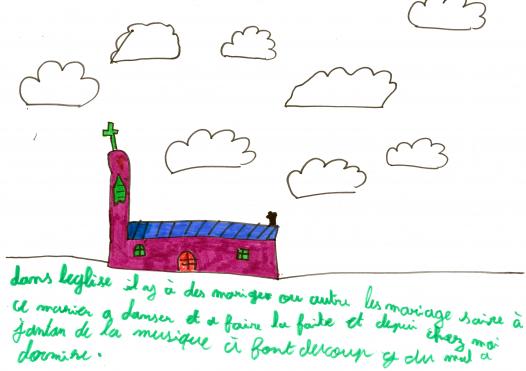 dans leglise il ay à des mariges ou autre les mariage saire à
ce marier a danser et a faire la faite et depui chez moi
jantan de la musique à font ducoup g du mal a
dormire.